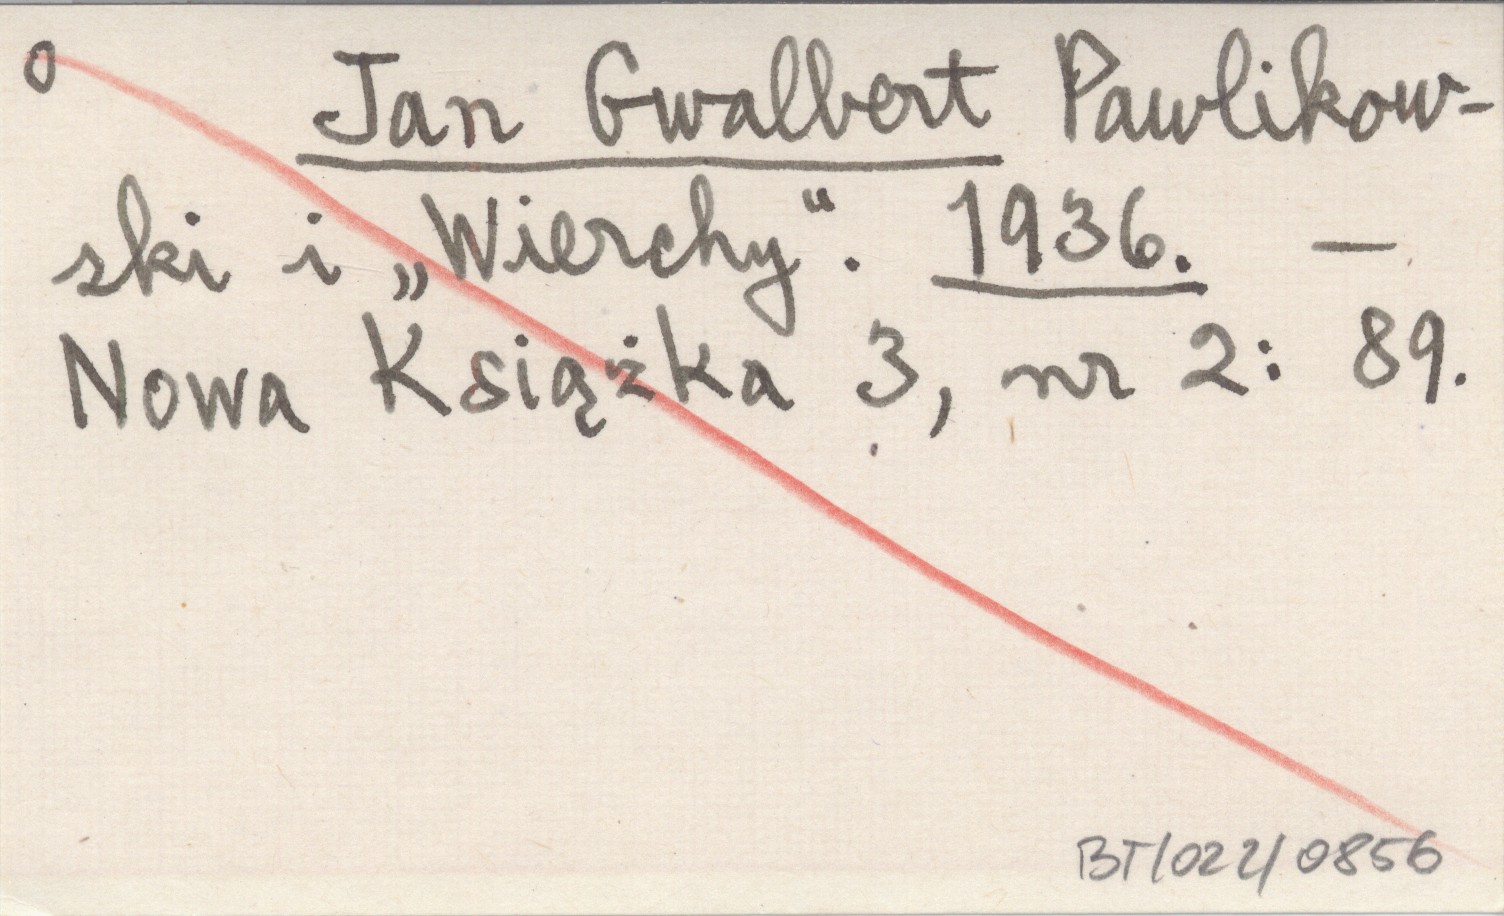 0 Jan Gwalbert Pawlikow-
ski i „Wierchy". 1936. —
Nowa Książka 3, nr 2: 89.
BT/022/0856